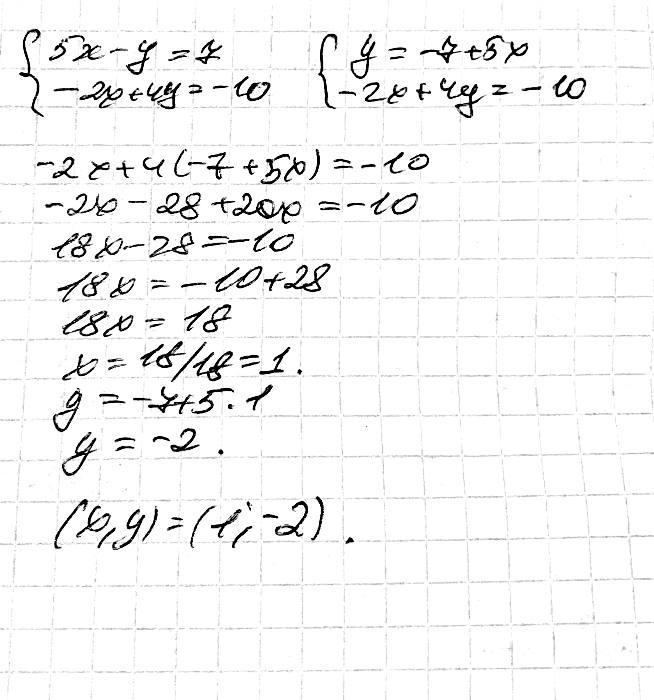 { 5x - y = 7 { y = -7+5x
-2x+4y = -10 -2x+4y = -10
-2x+4(-7+5x) = -10
-2x - 28 + 20x = -10
18x - 28 = -10
18x = -10+28
18x = 18
x = 18/18 = 1.
y = -7+5·1
y = -2.
(x, y) = (1; -2).